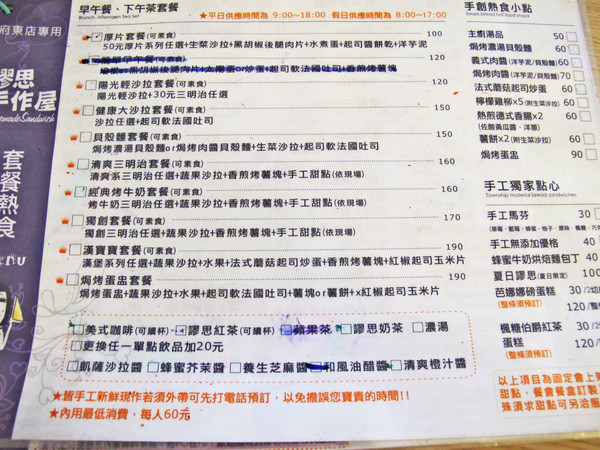 府東店專用
謬思
手作屋
Handmade Sandwich
套餐熱食
早午餐、下午茶套餐
Brunch, Afternoon Tea Set
★平日供應時間為 9:00~18:00 假日供應時間為 8:00~17:00
厚片套餐(可素食) 100
50元厚片系列任選+生菜沙拉+黑胡椒後腿肉片+水煮蛋+起司醬餅乾+洋芋泥
簡單早午餐(可素食) 120
陽光輕沙拉套餐(可素食) 120
陽光輕沙拉+30元三明治任選
健康大沙拉套餐(可素食) 150
沙拉任選+起司軟法國吐司
貝殼麵套餐(可素食) 150
焗烤濃湯貝殼麵or焗烤肉醬貝殼麵+生菜沙拉+起司軟法國吐司
清爽三明治套餐(可素食) 160
清爽系三明治任選+蔬果沙拉+香煎烤薯塊+手工甜點(依現場)
經典烤牛奶套餐(可素食) 160
烤牛奶三明治任選+蔬果沙拉+香煎烤薯塊+手工甜點(依現場)
獨創套餐(可素食) 170
獨創三明治任選+蔬果沙拉+香煎烤薯塊+手工甜點(依現場)
漢寶寶套餐(可素食) 190
漢堡系列任選+蔬果沙拉+水果+法式蘑菇起司炒蛋+香煎烤薯塊+紅椒起司玉米片
焗烤蛋盅套餐 190
焗烤蛋盅+蔬果沙拉+水果+起司軟法國吐司+薯塊or薯餅+x紅椒起司玉米片
美式咖啡(可續杯) 謬思紅茶(可續杯) 蘋果茶 謬思奶茶 濃湯
更換任一單點飲品加20元
凱薩沙拉醬 蜂蜜芥茉醬 養生芝麻醬 和風油醋醬 清爽橙汁醬
★皆手工新鮮現作若須外帶可先打電話預訂，以免擔誤您寶貴的時間!!
★內用最低消費，每人60元
手創熱食小點
Soups bread hot food snack
主廚湯品 50
焗烤濃湯貝殼麵 60
義式肉醬(洋芋泥/貝殼麵) 60
焗烤肉醬(洋芋泥/貝殼麵) 70
法式蘑菇起司炒蛋 60
檸檬雞柳x5(附生菜沙拉) 60
熱煎德式香腸x2 60
(佐酸黃瓜醬、洋蔥)
薯餅x2(附生菜沙拉) 60
焗烤蛋盅 90
手工獨家點心
Township material bread sandwiches
手工馬芬 30
手工無添加優格 40
蜂蜜牛奶烘焙麵包丁 40
夏日謬思(夏日限定) 100
芭娜娜磅蛋糕 30
(整條須預訂) 120
楓糖伯爵紅茶 30
蛋糕 120
(整條須預訂)
以上項目為固定會上
甜點，餐會餐盒訂製
殊須求甜點可另洽服